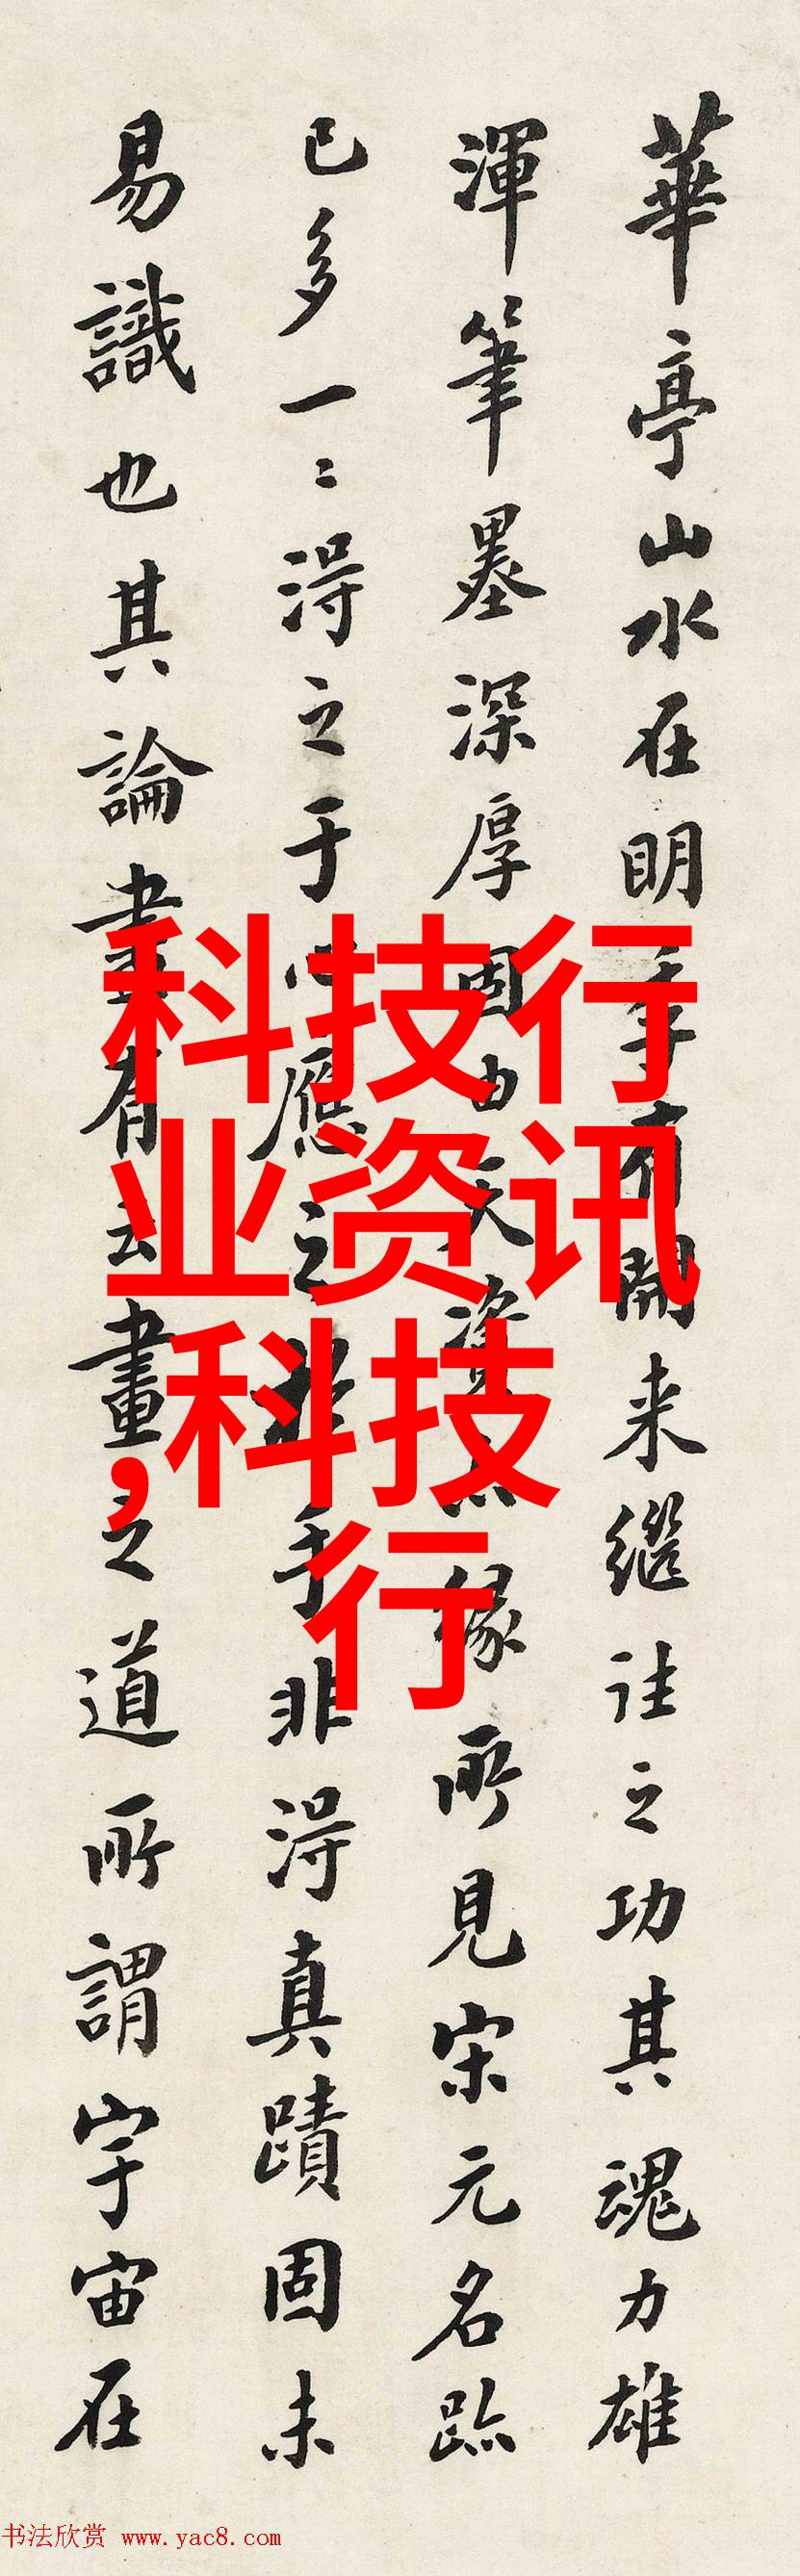 華亭山水在明季有開来繼往之功其魂力雄
渾筆墨深厚固由天資亦緣所見宋元名跡
已多一一淂之于心應之於手非淂真蹟固未
易識也其論畫有云畫之道所謂宇宙在
科技行
业资讯
,科技
行
书法欣赏 www.yac8.com